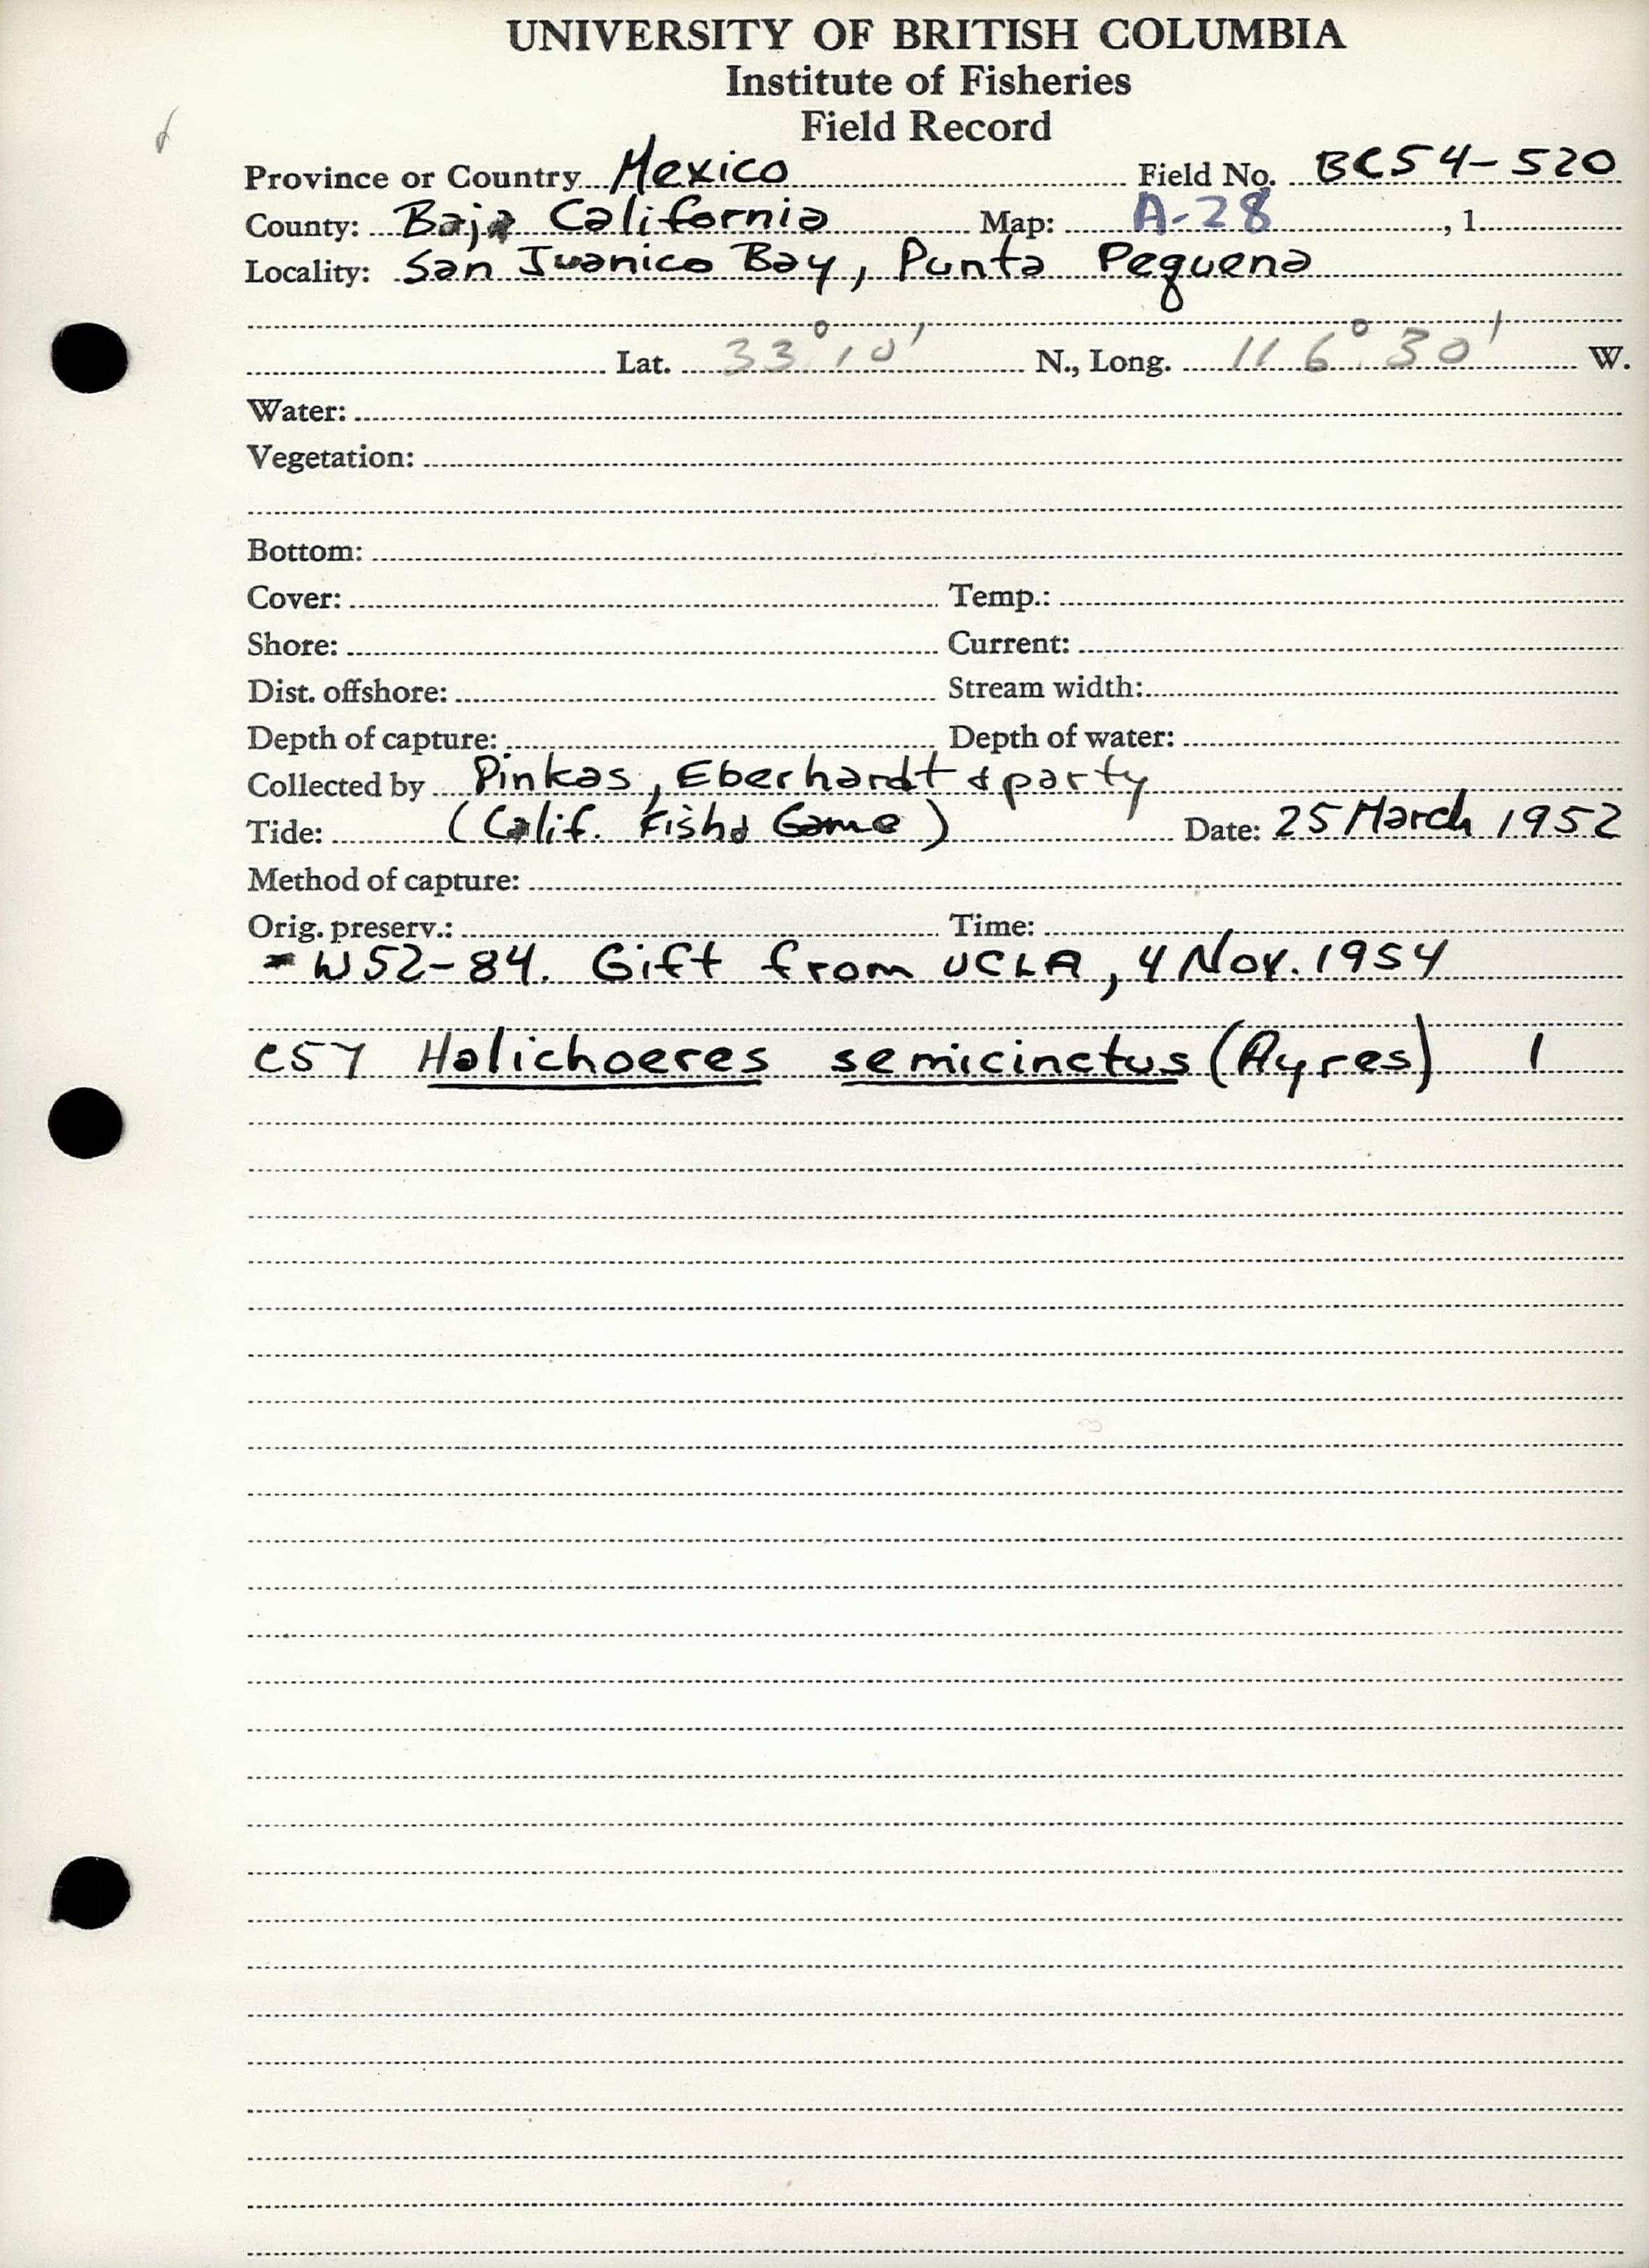 UNIVERSITY OF BRITISH COLUMBIA
Institute of Fisheries
Field Record
Province or Country Mexico Field No. BC54-520
County: Baja California Map: A-28 , 1
Locality: San Juanico Bay, Punta Pequena
Lat. 33°10' N., Long. 116°30' W.
Water:
Vegetation:
Bottom:
Cover: Temp.:
Shore: Current:
Dist. offshore: Stream width:
Depth of capture: Depth of water:
Collected by Pinkas, Eberhardt & party
Tide: (Calif. Fish & Game) Date: 25 March 1952
Method of capture:
Orig. preserv.: Time:
= W52-84. Gift from UCLA, 4 Nov. 1954
C57 Halichoeres semicinctus (Ayres) 1